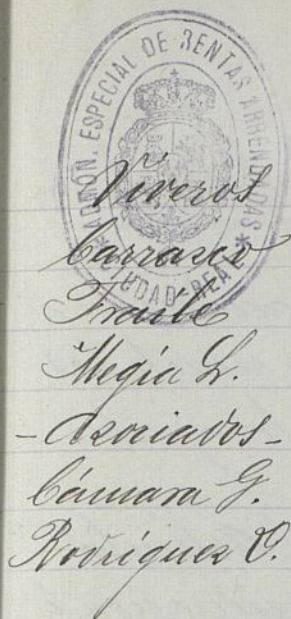 ADMÓN. ESPECIAL DE RENTAS ARRENDADAS
* CIUDAD-REAL *
Viveros
Carrasco
Fraile
Megía L.
- Asociados -
Cámara G.
Rodríguez O.